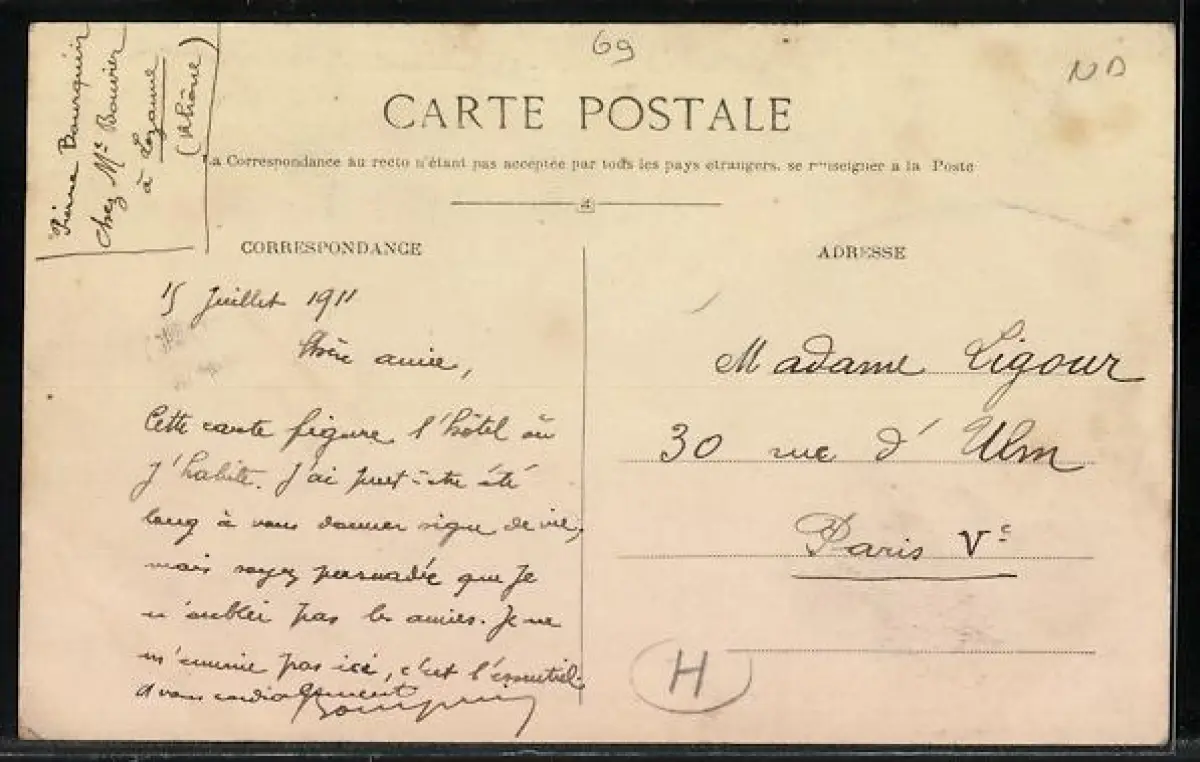 69
ND
Pierre Bourquin
chez Mᵉ Bouvier
à Lozanne
(Rhône)
CARTE POSTALE
La Correspondance au recto n'étant pas acceptée par tous les pays étrangers, se renseigner à la Poste
CORRESPONDANCE
ADRESSE
15 Juillet 1911
Chère amie,
Cette carte figure l'hôtel où
j'habite. J'ai peut-être été
long à vous donner signe de vie,
mais soyez persuadée que je
n'oublie pas les amies. Je ne
m'ennuie pas ici, c'est l'essentiel.
A vous cordialement
Bourquin
Madame Ligour
30 rue d'Ulm
Paris Vᵉ
H